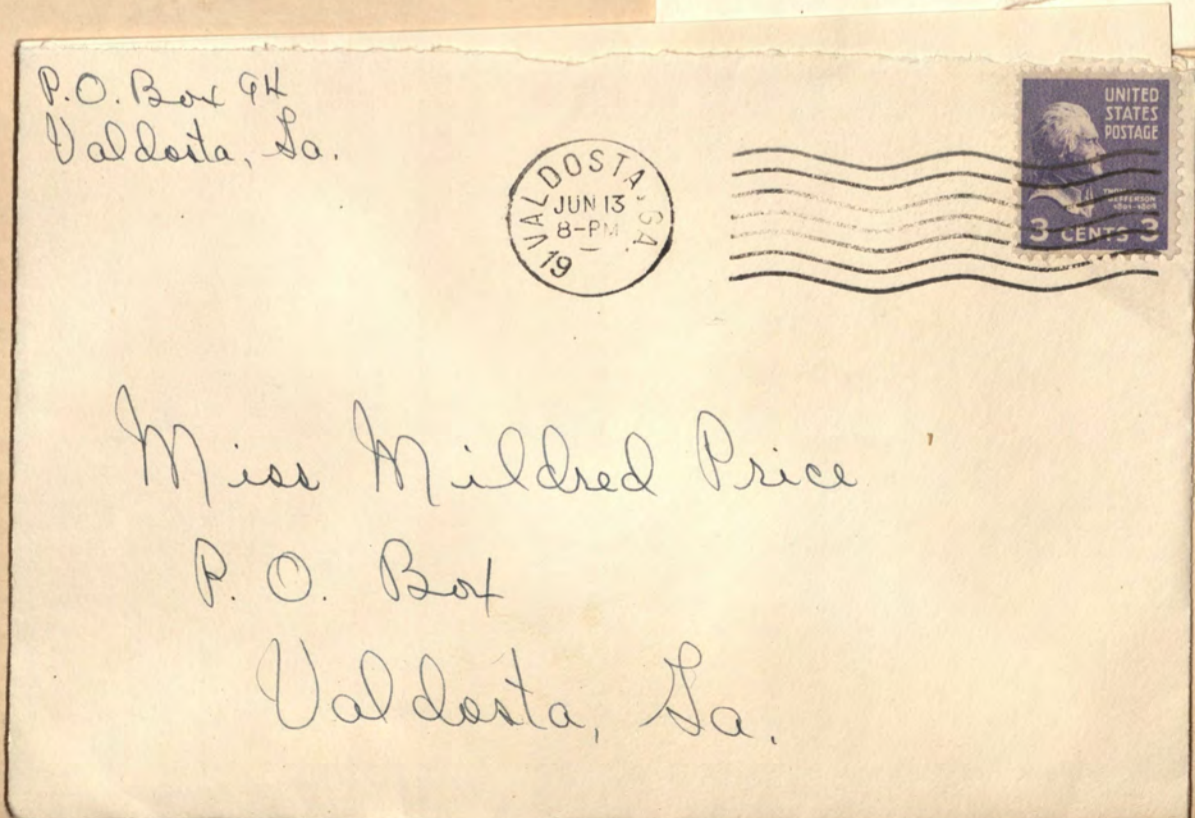 P.O. Box 94
Valdosta, Ga.
VALDOSTA, GA.
JUN 13
8-PM
19
UNITED
STATES
POSTAGE
THOMAS
JEFFERSON
1801-1809
3 CENTS 3
Miss Mildred Price
P. O. Box
Valdosta, Ga.